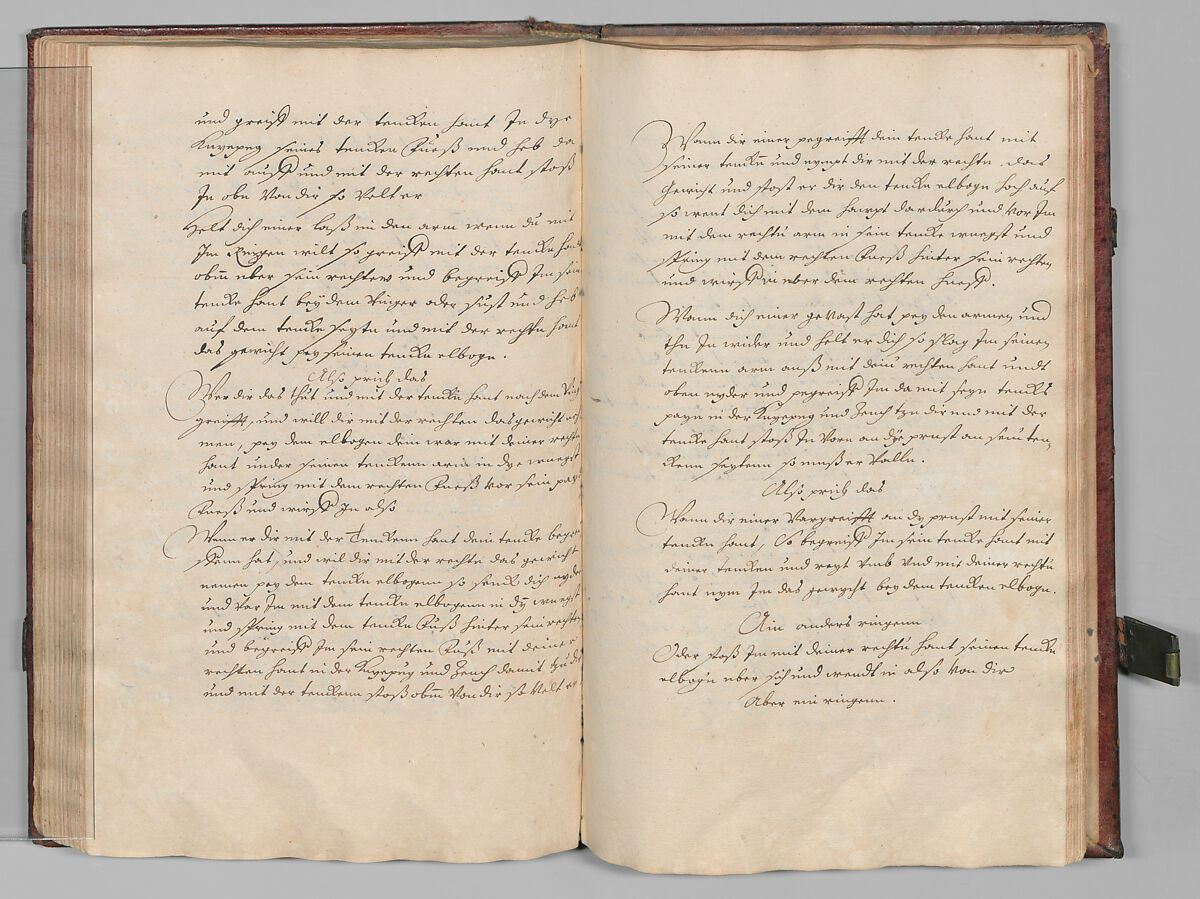 und greiff mit der tencken hant In dye
Knyepug seines tencken Fueß und heb da
mit auff und mit der rechten hant stoß
In obn von dir so velt er
Helt dich einer laß in den arm wenn du mit
Im Ringen wilt so greiff mit der tencke hant
obnn uber sein rechtew und begreiff Im sein
tencke hant bey dem vinger oder sust und heb
auf dem tencke seytn und mit der rechtn hant
das gewicht pey seinen tenckn elbogn.
Also prich das
Wer dir das thut und mit der tenckn hant nach dem
greifft, und will dir mit der rechten das gewicht
men, pey dem elbogen dein war mit deiner rechtn
hant under seinen tenckenn arm in dye wnegst
und spring mit dem rechten Fueß vor sein
Fueß und wirff In also
Wenn er dir mit der Tenckenn hant dein tencke
ffenn hat, und wil dir mit der rechtn das gewicht
nemen pey dem tenckn elbogenn so senck dich nyder
und var Im mit dem tenckn elbogenn in dy wnegst
und spring mit dem tencke Fuß hinter sein rechtn
und begreiff Im sein rechten Fuß mit deiner
rechten hant in der Knyepug und zeuch damit tzu dir
und mit der tenckenn stoß obnn von dir so velt er
Wann dir einer pegreifft dein tencke hant mit
seiner tenckn und nympt dir mit der rechtn das
gewicht und stost er dir den tenckn elbogn hoch auf
so went dich mit dem haupt dardurch und vor Im
mit dem rechtn arm in sein tencke wnegst und
spring mit dem rechten Fueß hinter sein rechten
und wirff in uber dem rechten Fuess.
Wann dich einer gevast hat pey den armen, und
thu In wider und helt er dich so slag Im seinen
tenckenn arm auß mit dein rechten hant undt
oben nyder und pegreiff Im damit seyn tencks
payn in der Knyepug und zeuch tzu dir und mit der
tencke hant stoß In vorn an dye prust an sein ten,
ckenn seytenn so muß er valln.
Also prich das
Wann dir einer vorgreifft an dy prust mit seiner
tenckn hant, So begreiff Im sein tencke hant mit
deiner tencken und reyt umb und mit deiner rechtn
hant nym Im das gewycht bey dem tencken elbogn.
Ain anders ringenn
Oder stoß Im mit deiner rechtn hant seinen tencke
elbogn uber sich und wendt in also von dir
Aber ein ringenn.